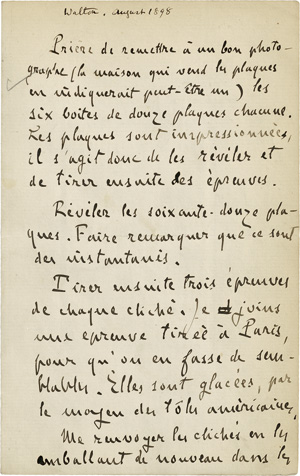 Walton. August 1898
Prière de remettre à un bon photo-
graphe (la maison qui vend les plaques
en indiquerait peut-être un) les
six boites de douze plaques chacune.
Les plaques sont impressionnées,
il s'agit donc de les révéler et
de tirer ensuite des épreuves.
Révéler les soixante-douze pla-
ques. Faire remarquer que ce sont
des instantanés.
Tirer ensuite trois épreuves
de chaque cliché. Je joins
une épreuve tirée à Paris,
pour qu'on en fasse de sem-
blables. Elles sont glacées, par
le moyen des tôles américaines.
Me renvoyer les clichés en les
emballant de nouveau dans les